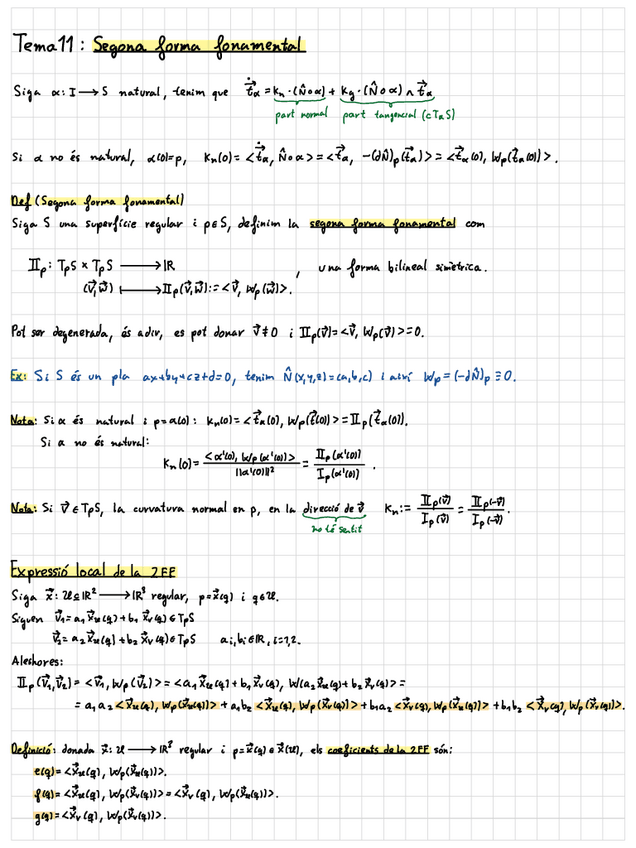 Tema 11: Segona forma fonamental
Siga α: I → S natural, tenim que \dot{\vec{t}}_α = k_n · (N̂∘α) + k_g · (N̂∘α) ∧ \vec{t}_α
part normal part tangencial (⊂ T_αS)
Si α no és natural, α(0)=p, k_n(0) = <\dot{\vec{t}}_α, N̂∘α> = <\vec{t}_α, -(dN̂)_p(\vec{t}_α)> = <\vec{t}_α(0), W_p(\vec{t}_α(0))>.
Def (Segona forma fonamental)
Siga S una superfície regular i p∈S, definim la segona forma fonamental com
II_p: T_pS × T_pS → ℝ , una forma bilineal simètrica.
(\vec{v}, \vec{w}) ↦ II_p(\vec{v}, \vec{w}) := <\vec{v}, W_p(\vec{w})>.
Pot ser degenerada, és a dir, es pot donar \vec{v} ≠ 0 i II_p(\vec{v}) = <\vec{v}, W_p(\vec{v})> = 0.
Ex: Si S és un pla ax+by+cz+d=0, tenim N̂(x,y,z)=(a,b,c) i així W_p = (-dN̂)_p ≡ 0.
Nota: Si α és natural i p=α(0): k_n(0) = <\vec{t}_α(0), W_p(\vec{t}(0))> = II_p(\vec{t}_α(0)).
Si α no és natural:
k_n(0) = <α'(0), W_p(α'(0))> / ||α'(0)||² = II_p(α'(0)) / I_p(α'(0)) .
Nota: Si \vec{v} ∈ T_pS, la curvatura normal en p, en la direcció de \vec{v} k_n := II_p(\vec{v}) / I_p(\vec{v}) = II_p(-\vec{v}) / I_p(-\vec{v}).
no té sentit
Expressió local de la 2FF
Siga \vec{x}: U ⊆ ℝ² → ℝ³ regular, p=\vec{x}(q) i q∈U.
Siguen \vec{v}_1 = a_1 \vec{x}_u(q) + b_1 \vec{x}_v(q) ∈ T_pS
\vec{v}_2 = a_2 \vec{x}_u(q) + b_2 \vec{x}_v(q) ∈ T_pS a_i, b_i ∈ ℝ, i=1,2.
Aleshores:
II_p(\vec{v}_1, \vec{v}_2) = <\vec{v}_1, W_p(\vec{v}_2)> = <a_1 \vec{x}_u(q) + b_1 \vec{x}_v(q), W(a_2 \vec{x}_u(q) + b_2 \vec{x}_v(q)> =
= a_1 a_2 <\vec{x}_u(q), W_p(\vec{x}_u(q))> + a_1 b_2 <\vec{x}_u(q), W_p(\vec{x}_v(q))> + b_1 a_2 <\vec{x}_v(q), W_p(\vec{x}_u(q))> + b_1 b_2 <\vec{x}_v(q), W_p(\vec{x}_v(q))>.
Definició: donada \vec{x}: U → ℝ³ regular i p=\vec{x}(q) ∈ \vec{x}(U), els coeficients de la 2FF són:
e(q) = <\vec{x}_u(q), W_p(\vec{x}_u(q))>.
f(q) = <\vec{x}_u(q), W_p(\vec{x}_v(q))> = <\vec{x}_v(q), W_p(\vec{x}_u(q))>.
g(q) = <\vec{x}_v(q), W_p(\vec{x}_v(q))>.